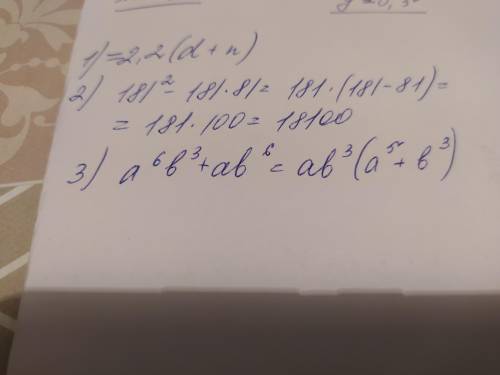 1) = 2,2(d+n)
2) 181² - 181·81 = 181·(181-81) =
= 181·100 = 18100
3) a⁶b³+ab⁶ = ab³(a⁵+b³)